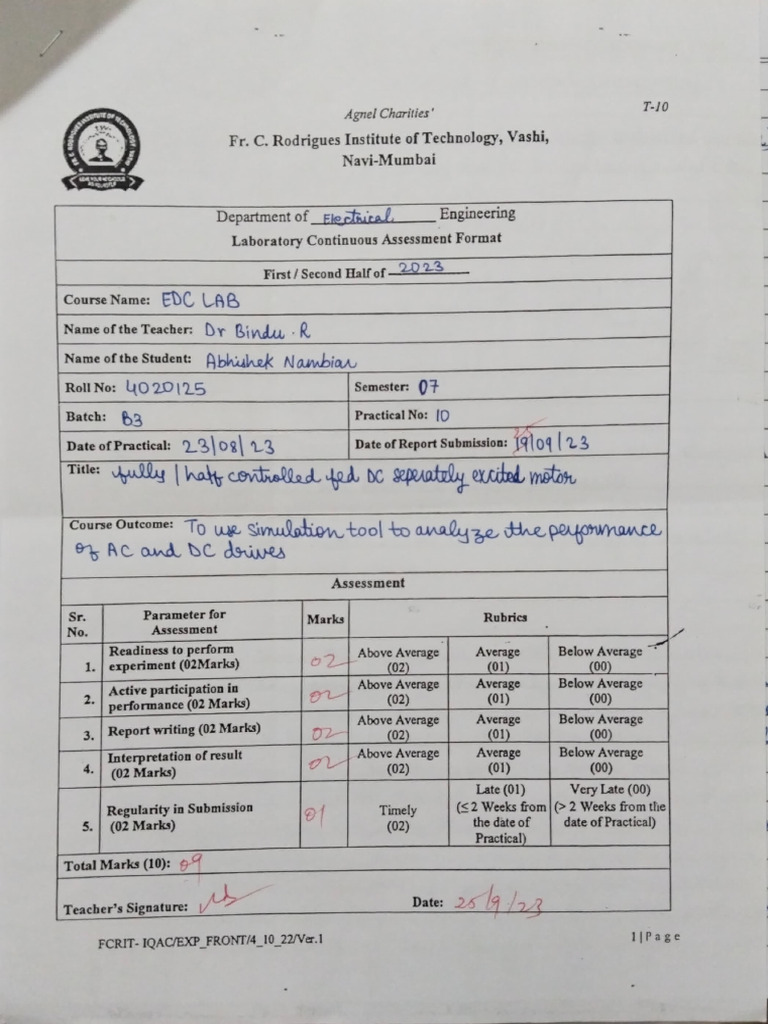 Agnel Charities'
T-10
Fr. C. Rodrigues Institute of Technology, Vashi,
Navi-Mumbai
Department of Electrical Engineering
Laboratory Continuous Assessment Format
First / Second Half of 2023
Course Name: EDC LAB
Name of the Teacher: Dr Bindu . R
Name of the Student: Abhishek Nambiar
Roll No: 4020125 Semester: 07
Batch: B3 Practical No: 10
Date of Practical: 23/08/23 Date of Report Submission: 19/09/23
25
Title: fully / half controlled fed DC seperately excited motor
Course Outcome: To use simulation tool to analyze the performance
of AC and DC drives
Assessment
Sr. No. Parameter for Assessment Marks Rubrics
1. Readiness to perform experiment (02Marks) 02 Above Average (02) Average (01) Below Average (00)
2. Active participation in performance (02 Marks) 02 Above Average (02) Average (01) Below Average (00)
3. Report writing (02 Marks) 02 Above Average (02) Average (01) Below Average (00)
4. Interpretation of result (02 Marks) 02 Above Average (02) Average (01) Below Average (00)
5. Regularity in Submission (02 Marks) 01 Timely (02) Late (01) (≤ 2 Weeks from the date of Practical) Very Late (00) (> 2 Weeks from the date of Practical)
Total Marks (10): 09
Teacher's Signature: Date: 25/9/23
FCRIT- IQAC/EXP_FRONT/4_10_22/Ver.1
1 | Page